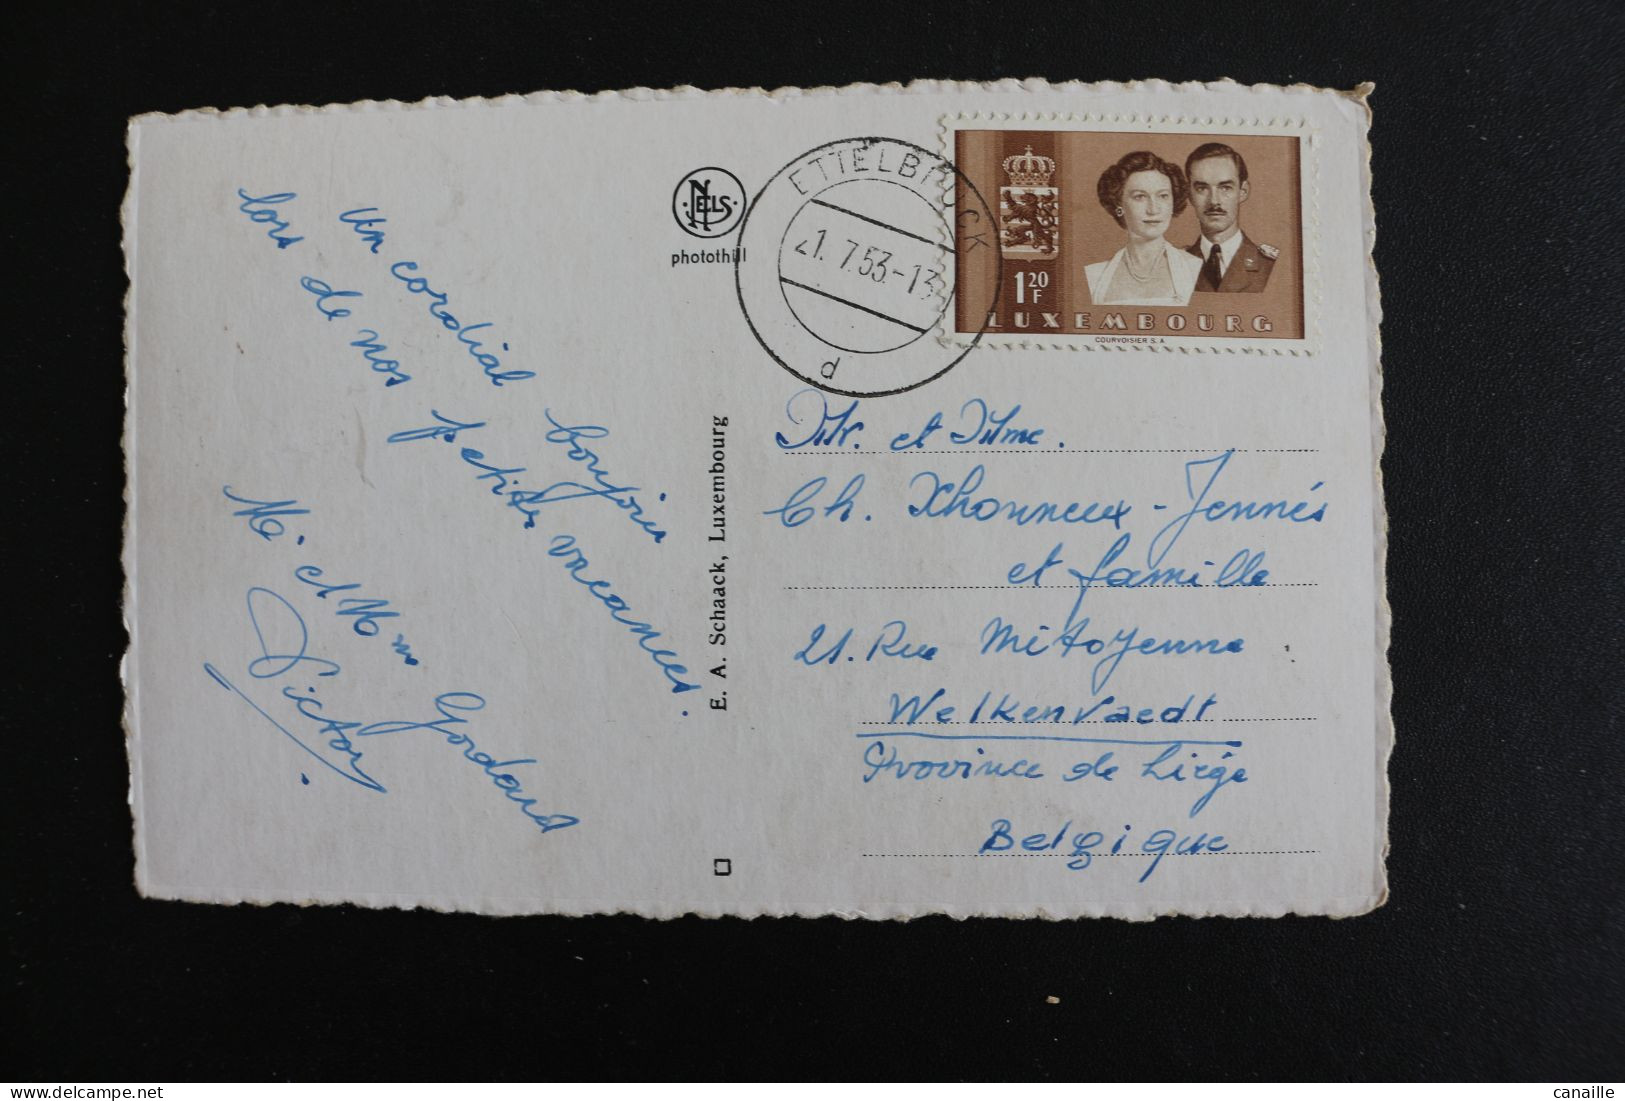 Un cordial bonjour
lors de nos petites vacances.
Mr et Mme Gordard
Victor
NELS
photothill
E. A. Schaack, Luxembourg
ETTELBRUCK
21.7.53-13
d
1 20 F
LUXEMBOURG
COURVOISIER S. A
Mr. et Mme.
Ch. Xhonneux-Jennés
et famille
21. Rue Mitoyenne
Welkenraedt
Province de Liége
Belgique
canaille